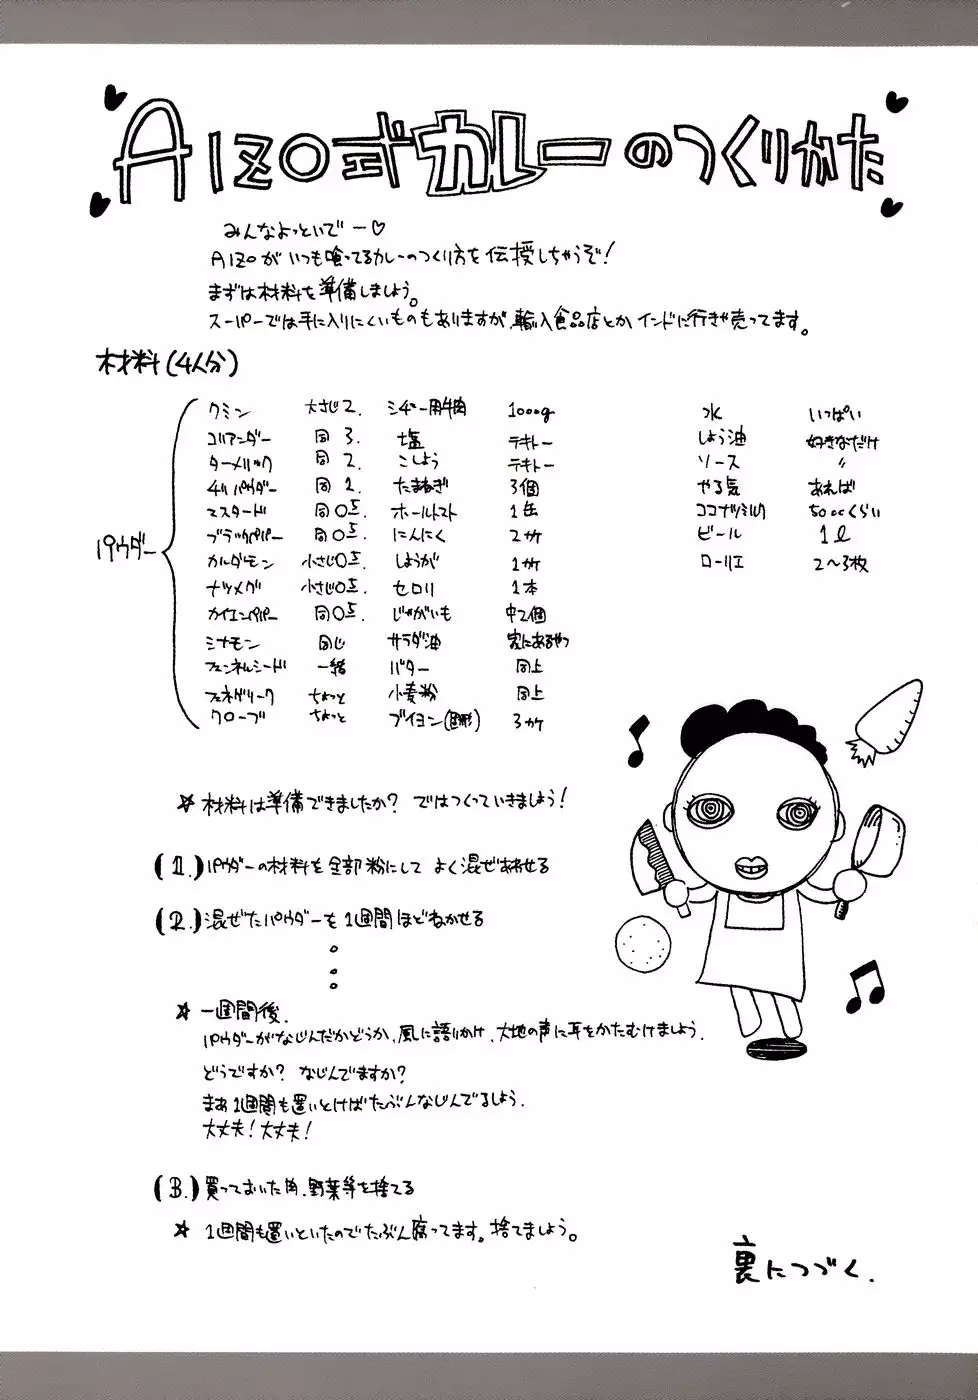 AIZO式カレーのつくりかた
みんなよっといでー♡
AIZOがいつも喰ってるカレーのつくり方を伝授しちゃうぞ!
まずは材料を準備しましょう。
スーパーでは手に入りにくいものもありますが、輸入食品店とかインドに行きゃ売ってます。
材料(4人分)
パウダー
クミン 大さじ2.
コリアンダー 同3.
ターメリック 同2.
チリパウダー 同1.
マスタード 同0.5.
ブラックペパー 同0.5.
カルダモン 小さじ0.5.
ナツメグ 小さじ0.5.
カイエンペパー 同0.5.
シナモン 同じ
フェンネルシード 一緒
フェネグリーク ちょっと
クローブ ちょっと
シチュー用牛肉 1000g
塩 テキトー
こしょう テキトー
たまねぎ 3個
ホールトマト 1缶
にんにく 2ケ
しょうが 1ケ
セロリ 1本
じゃがいも 中2個
サラダ油 家にあるやつ
バター 同上
小麦粉 同上
ブイヨン(固形) 3ケ
水 いっぱい
しょう油 好きなだけ
ソース 〃
やる気 あれば
ココナツミルク 50ccくらい
ビール 1ℓ
ローリエ 2〜3枚
☆ 材料は準備できましたか? ではつくっていきましょう!
(1.) パウダーの材料を全部粉にして よく混ぜあわせる
(2.) 混ぜたパウダーを1週間ほどねかせる
☆ 一週間後.
パウダーがなじんだかどうか、風に語りかけ、大地の声に耳をかたむけましょう.
どうですか? なじんでますか?
まぁ1週間も置いとけばたぶんなじんでるしょう.
大丈夫!大丈夫!
(3.) 買っておいた肉、野菜等を捨てる
☆ 1週間も置いといたのでたぶん腐ってます。捨てましょう。
裏につづく.